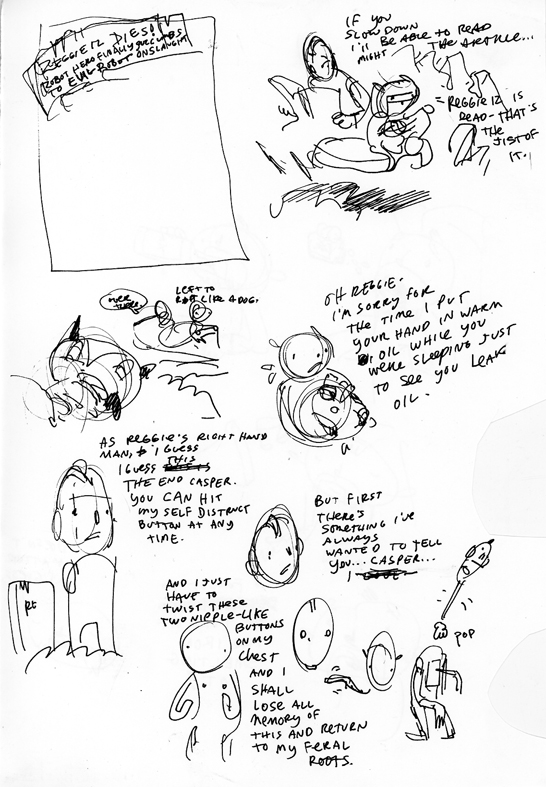 REGGIE 12 DIES!
ROBOT HERO FINALLY SUCCUMBS
TO EVIL ROBOT ONSLAUGHT
IF YOU
SLOW DOWN
I'LL BE ABLE TO READ
MIGHT THE ARTICLE...
= REGGIE 12 IS
READ - THAT'S
THE
JIST OF
IT.
OVER
THERE.
LEFT TO
ROT LIKE A DOG.
OH REGGIE.
I'M SORRY FOR
THE TIME I PUT
YOUR HAND IN WARM
OIL WHILE YOU
WERE SLEEPING JUST
TO SEE YOU LEAK
OIL.
AS REGGIE'S RIGHT HAND
MAN, I GUESS
I GUESS THIS
THE END CASPER.
YOU CAN HIT
MY SELF DISTRUCT
BUTTON AT ANY
TIME.
BUT FIRST
THERE'S
SOMETHING I'VE
ALWAYS
WANTED TO TELL
YOU... CASPER...
I
AND I JUST
HAVE TO
TWIST THESE
TWO NIPPLE-LIKE
BUTTONS
ON MY
CHEST
AND I
SHALL
LOSE ALL
MEMORY OF
THIS AND RETURN
TO MY FERAL
ROOTS.
POP